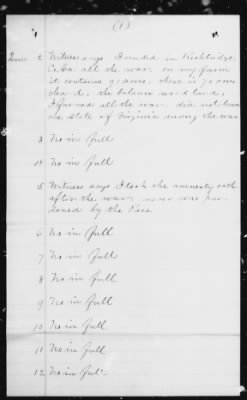 (1)
Ques 2 Witness says I resided in Rockbridge
Co. Va. all the war. on my farm
it contains 90 acres. there is 70 acres
clear'd. the balance wood land,
I farmed all the war. did not leave
the state of Virginia during the war
3 No in full
4 No in full
5 Witness says I took the amnesty oath
after the war. never was par-
doned by the Pres.
6 No in full
7 No in full
8 No in full
9 No in full
10 No in full
11 No in full
12 No in full